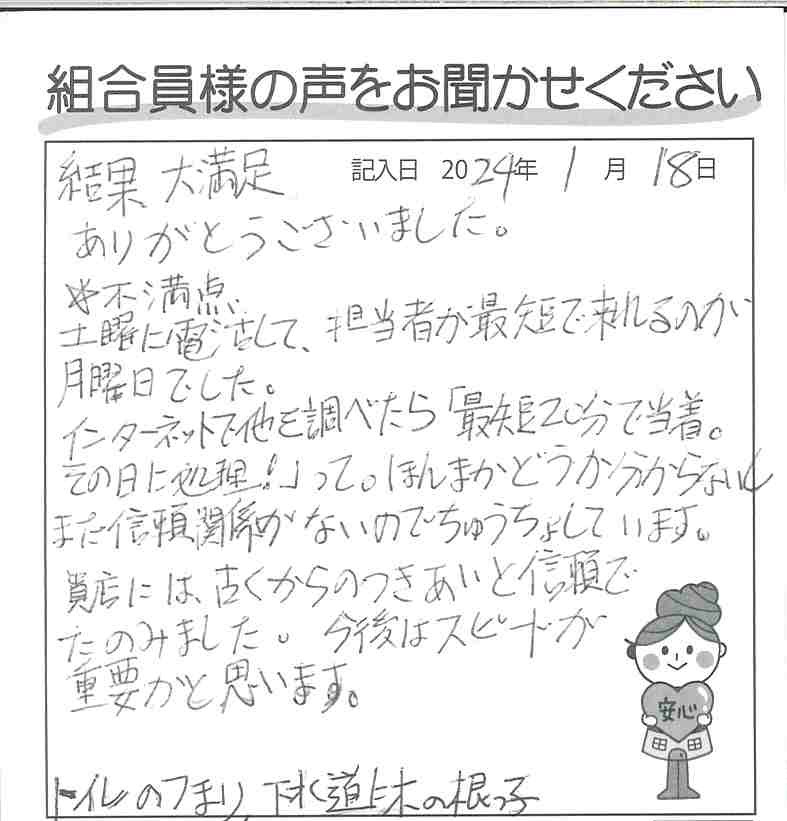 組合員様の声をお聞かせください
結果 大満足 記入日 2024年 1月 18日
ありがとうございました。
*不満点
土曜に電話して、担当者が最短で来れるのが
月曜日でした。
インターネットで他を調べたら「最短20分で当着。
その日に処理!」って。ほんまかどうか分からないし
まだ信頼関係がないのでちゅうちょしています。
貴店には、古くからのつきあいと信頼で
たのみました。今後はスピードが
重要かと思います。
安心
トイレのつまり、下水道に木の根っ子